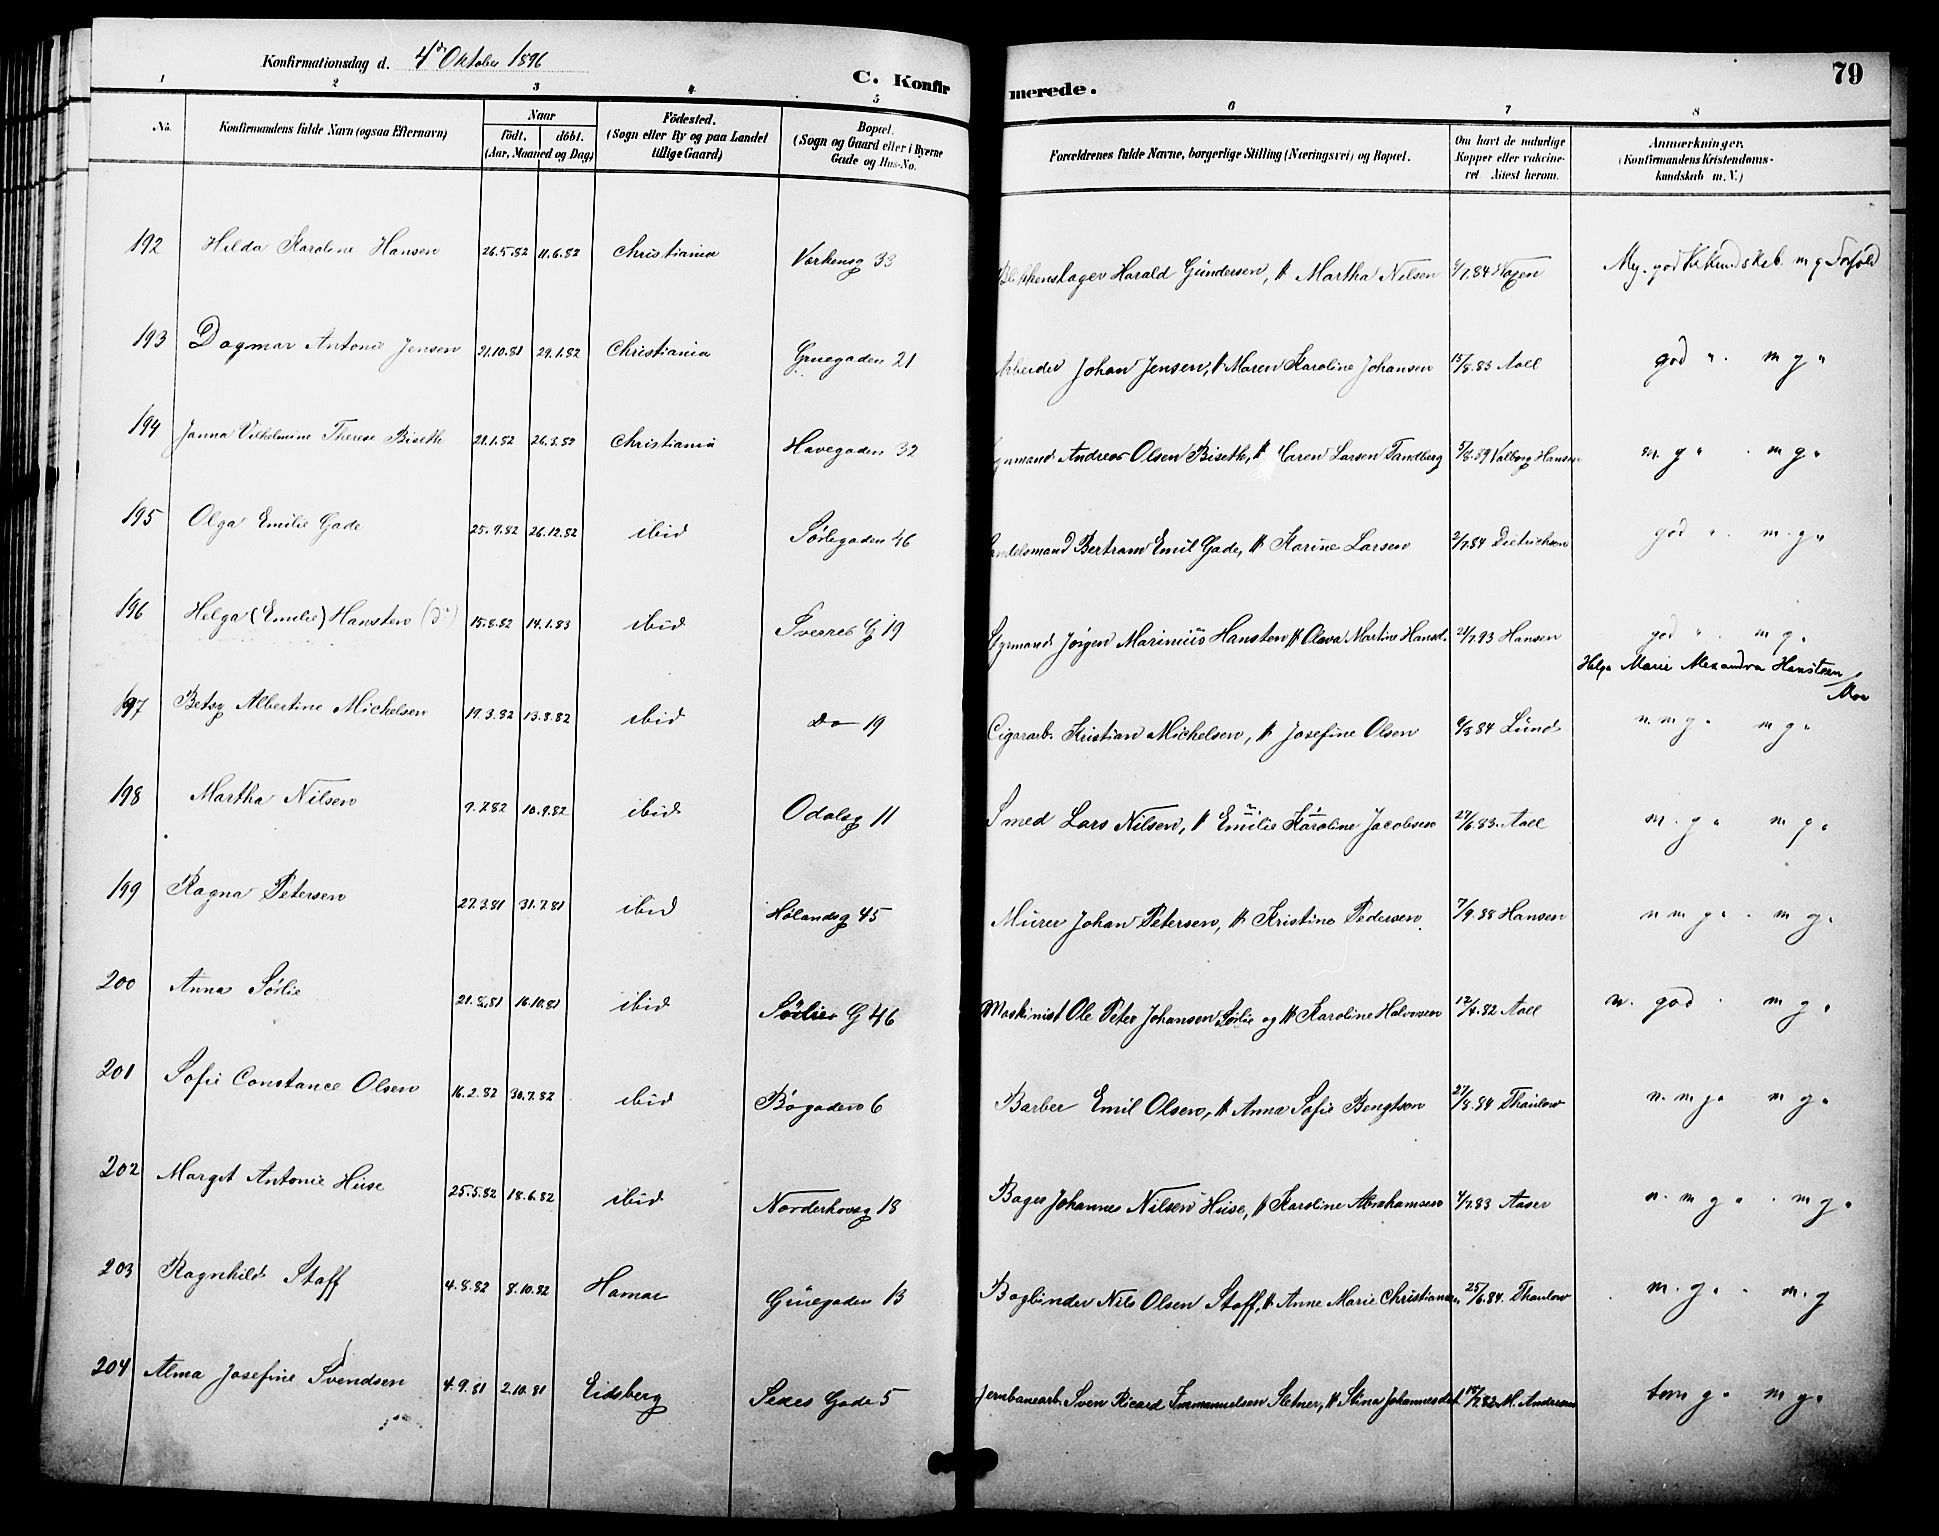 Konfirmationsdag d. 4de Oktober 1896
C. Konfirmerede.
79
1 2 3 4 5 6 7 8
No. Konfirmandens fulde Navn (ogsaa Efternavn) Naar födt. döbt. (Aar, Maaned og Dag) Födested. (Sogn eller By og paa Landet tillige Gaard) Bopæl. (Sogn og Gaard eller i Byerne Gade og Hus-No. Forældrenes fulde Navne, borgerlige Stilling (Næringsvei) og Bopæl. Om havt de naturlige Kopper eller vaksineret Attest herom. Anmærkninger. (Konfirmandens Kristendomskundskab m. V.)
192 Hilda Karoline Hansen 26.5.82 11.6.82 Christiania Verkensg 33 Blikkenslager Harald Gundersen, & Martha Nilsen 6/7.84 Vogen Mg. god Kr.Kundskab. m g Forhold
193 Dagmar Antonie Jensen 21.10.81 29.1.82 Christiania Gruegaden 21 Arbeider Johan Jensen, & Maren Karoline Johansen 15/8.83 Aall god " . m g "
194 Janna Vilhelmine Therese Biseth 21.1.82 26.3.82 Christiania Havegaden 32 Andreas Olsen Biseth, & Caren Larsen Tandberg 5/6.89 Valborg Hansen m. g " . m g "
195 Olga Emilie Gade 25.9.82 26.12.82 ibid Sörlegaden 46 Handelsmand Bertram Emil Gade, & Karine Larsen 2/7.84 Dietrichson god " . m. g "
196 Helga (Emilie) Hansten 15.8.82 14.1.83 ibid Sverres G 19 Styrmand Jörgen Marinius Hansten & Olava Martine Hansd. 21/7.93 Hansen god " . m g "
Helga Marie Alexandra Hansteen
Moe
197 Betsy Albertine Michelsen 19.3.82 13.8.82 ibid Do 19 Cigararb. Kristian Michelsen, & Josefine Olsen 6/8 84 Lund n. m g " m g "
198 Martha Nilsen 9.7.82 10.9.82 ibid Odalsg 11 Smed Lars Nilsen, & Emilie Karoline Jacobsen 27/6.83. Aall m. g " m g "
199 Ragna Petersen 27.3.81 31.7.81 ibid Hölandsg 45 Murer Johan Petersen, & Kristine Pedersen. 7/9.88 Hansen n m g " . m g "
200 Anna Sörlie 21.8.81 16.10.81 ibid Sörlies G 46 Maskinist Ole Peter Johansen Sörlie og & Karoline Halvorsen 12/4.82 Aall n. god . m g "
201 Sofie Constance Olsen 16.2.82 30.7.82 ibid Bögaden 6 Barber Emil Olsen, & Anna Sofie Bengtson 27/8.84 Thaulow n. m g " m g "
202 Margit Antonie Huse 25.5.82 18.6.82 ibid Norderhovsg 18 Bager Johannes Nilsen Huse, & Karoline Abrahamsen 4/7.83 Aaser n. m g " . m g "
203 Ragnhild Staff 4.8.82 8.10.82 Hamar Gruegaden 13 Bogbinder Nils Olsen Staff, & Anne Marie Christiansen 25/6.84. Thaulow m. g " . m. g
204 Alma Josefine Svendsen 4.9.81 2.10.81 Eidsberg Sexes Gade 5 Jernbanearb. Sven Ricard Immanuelsen Sletner, & Stina Johannesdat. 18/7.82 M. Andersen tem g " m g "